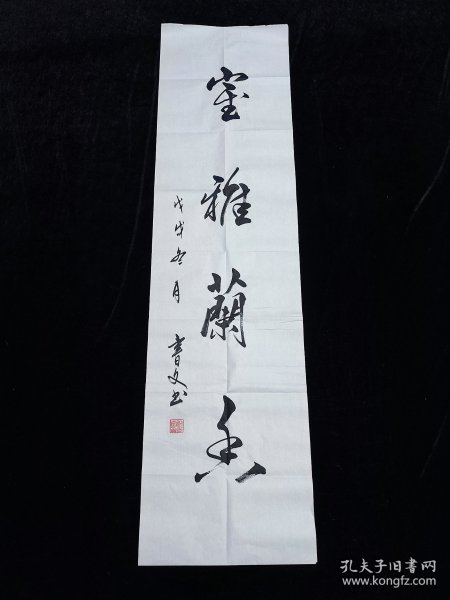 室雅蘭香
戊戌冬月
書文书
孔夫子旧书网
www.kongfz.com